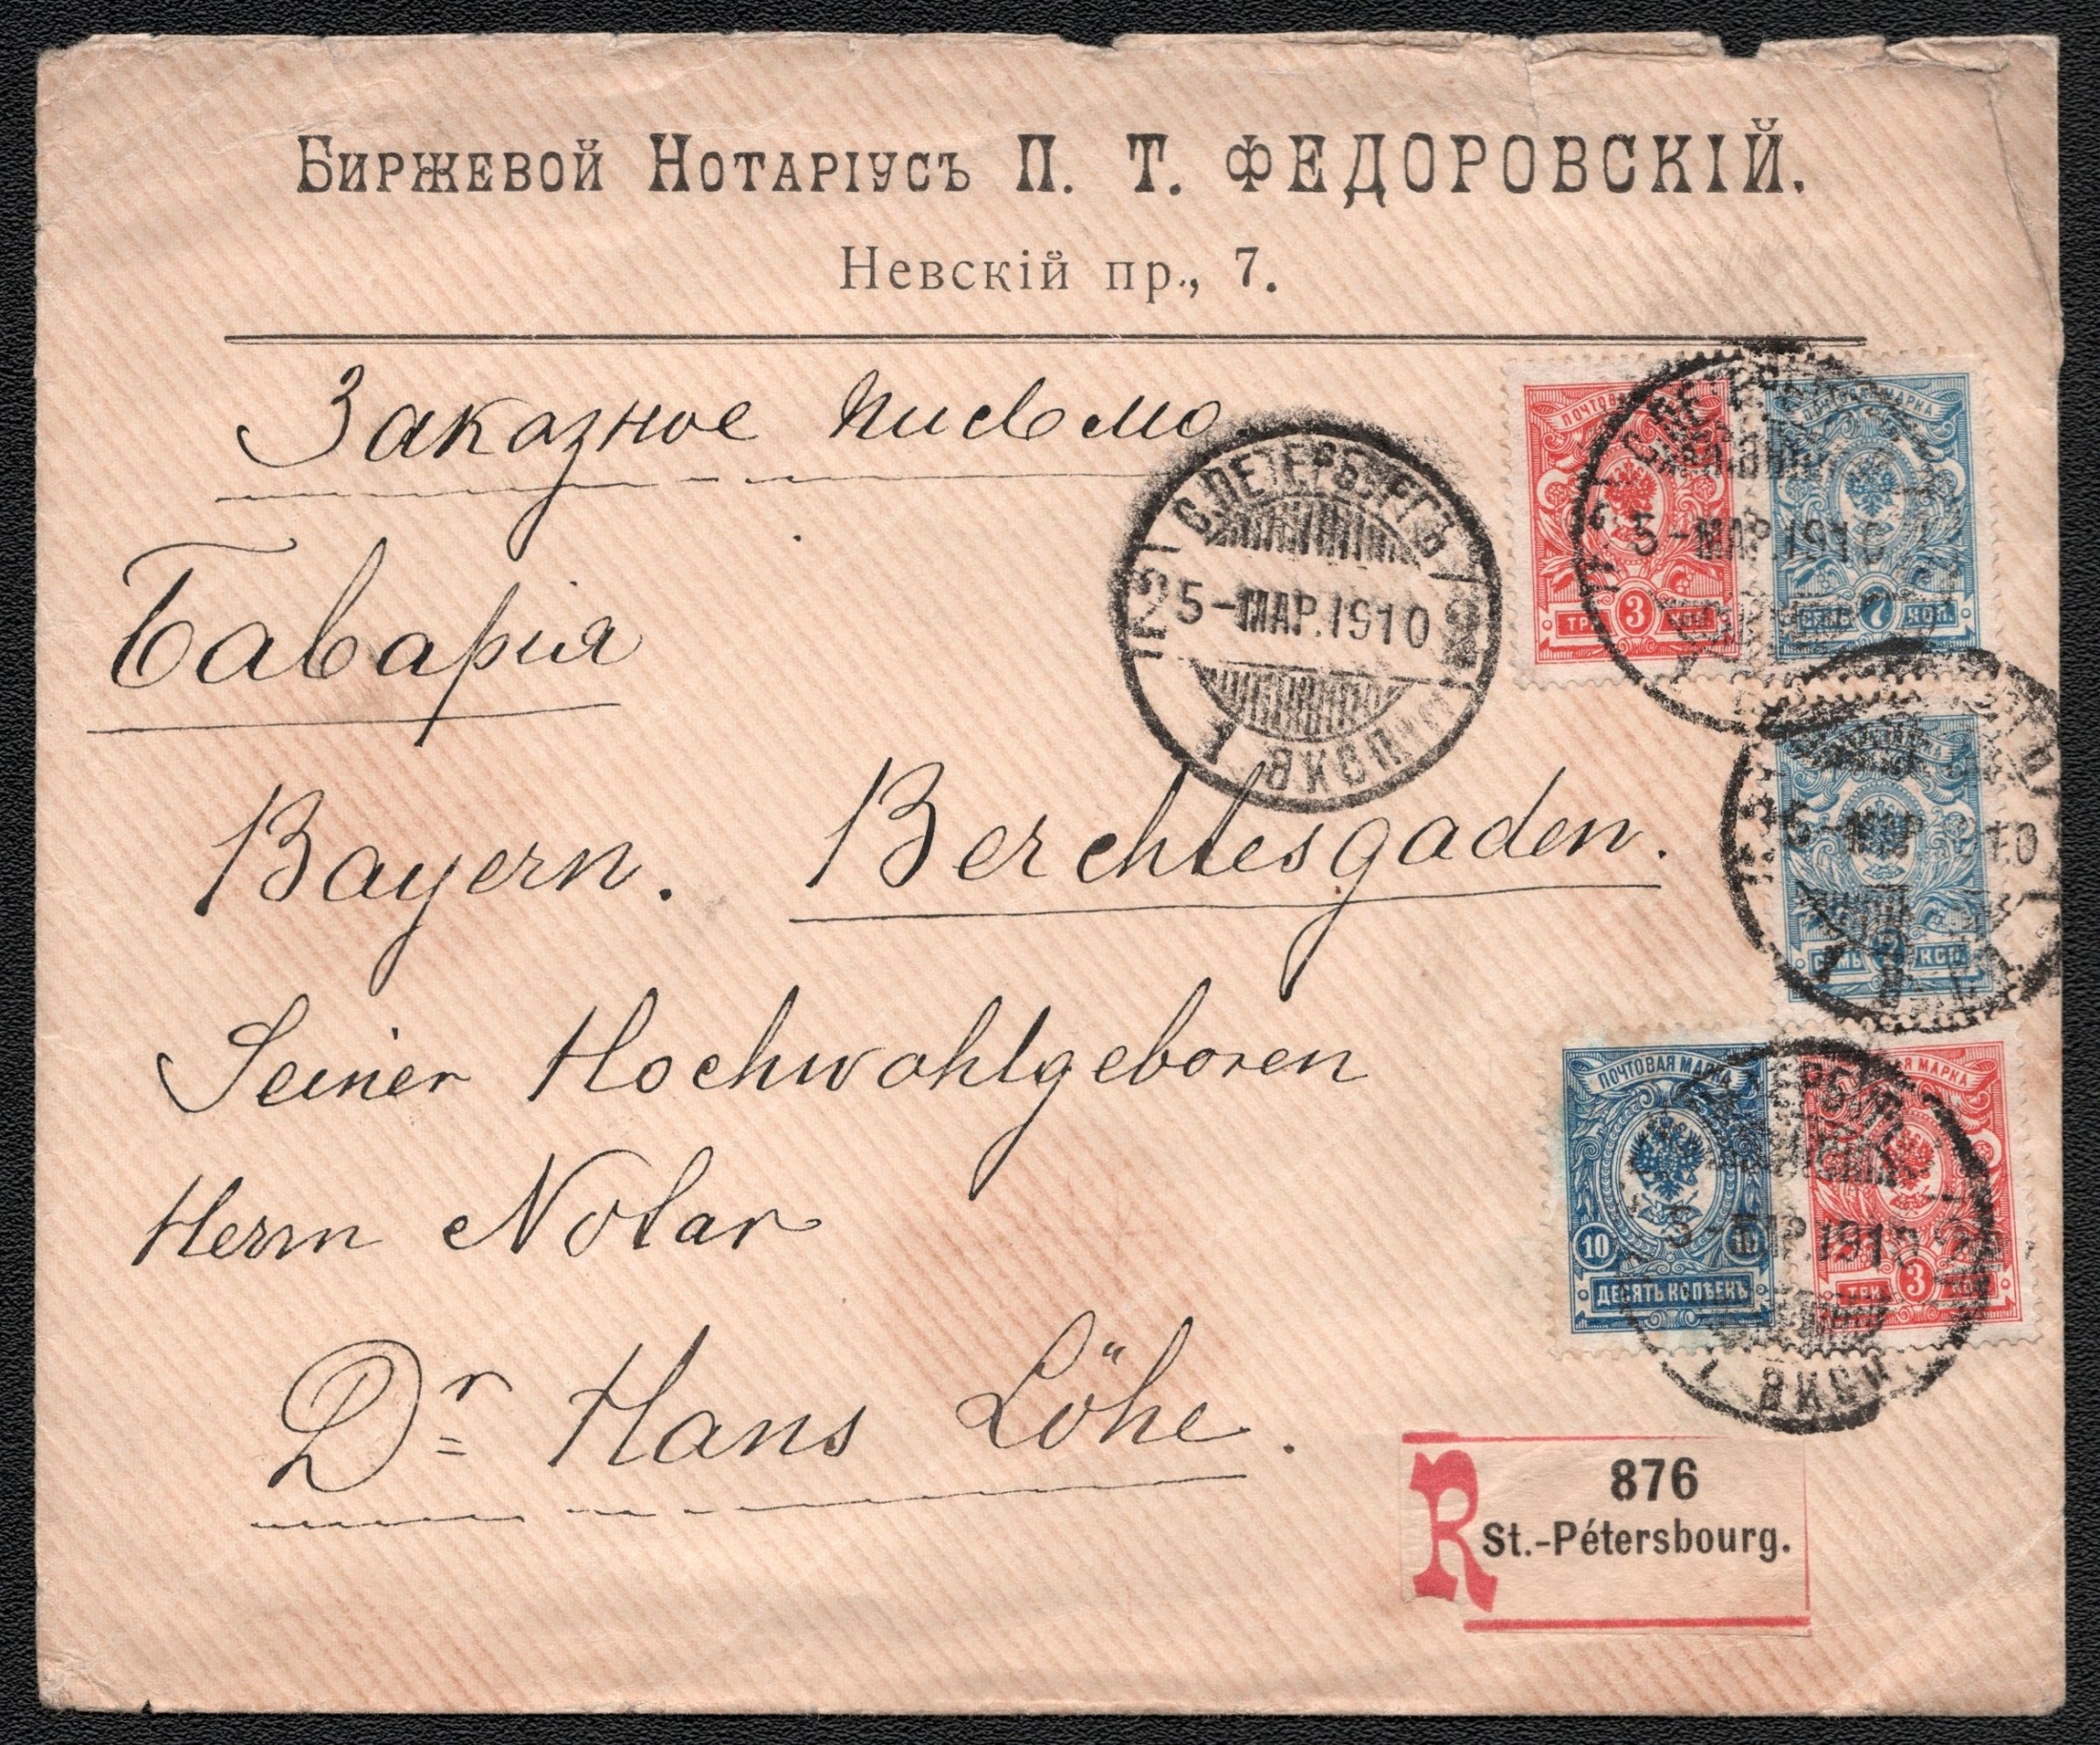 Биржевой Нотаріусъ П. Т. ФЕДОРОВСКІЙ.
Невскій пр., 7.
Заказное письмо
Баварія
Bayern. Berchtesgaden.
Seiner Hochwohlgeboren
Herrn Notar
Dr Hans Löhe.
С.ПЕТЕРБУРГЪ
5-МАР.1910
1 ЭКСП.
ПОЧТОВАЯ МАРКА
ТРИ 3 КОП.
5-МАР.1910
ПОЧТОВАЯ МАРКА
СЕМЬ 7 КОП.
СЕМЬ 7 КОП.
ПОЧТОВАЯ МАРКА
10 10
ДЕСЯТЬ КОПѢЕКЪ
МАРКА
ТРИ 3 КОП.
5-МАР.1910
R
876
St.-Pétersbourg.